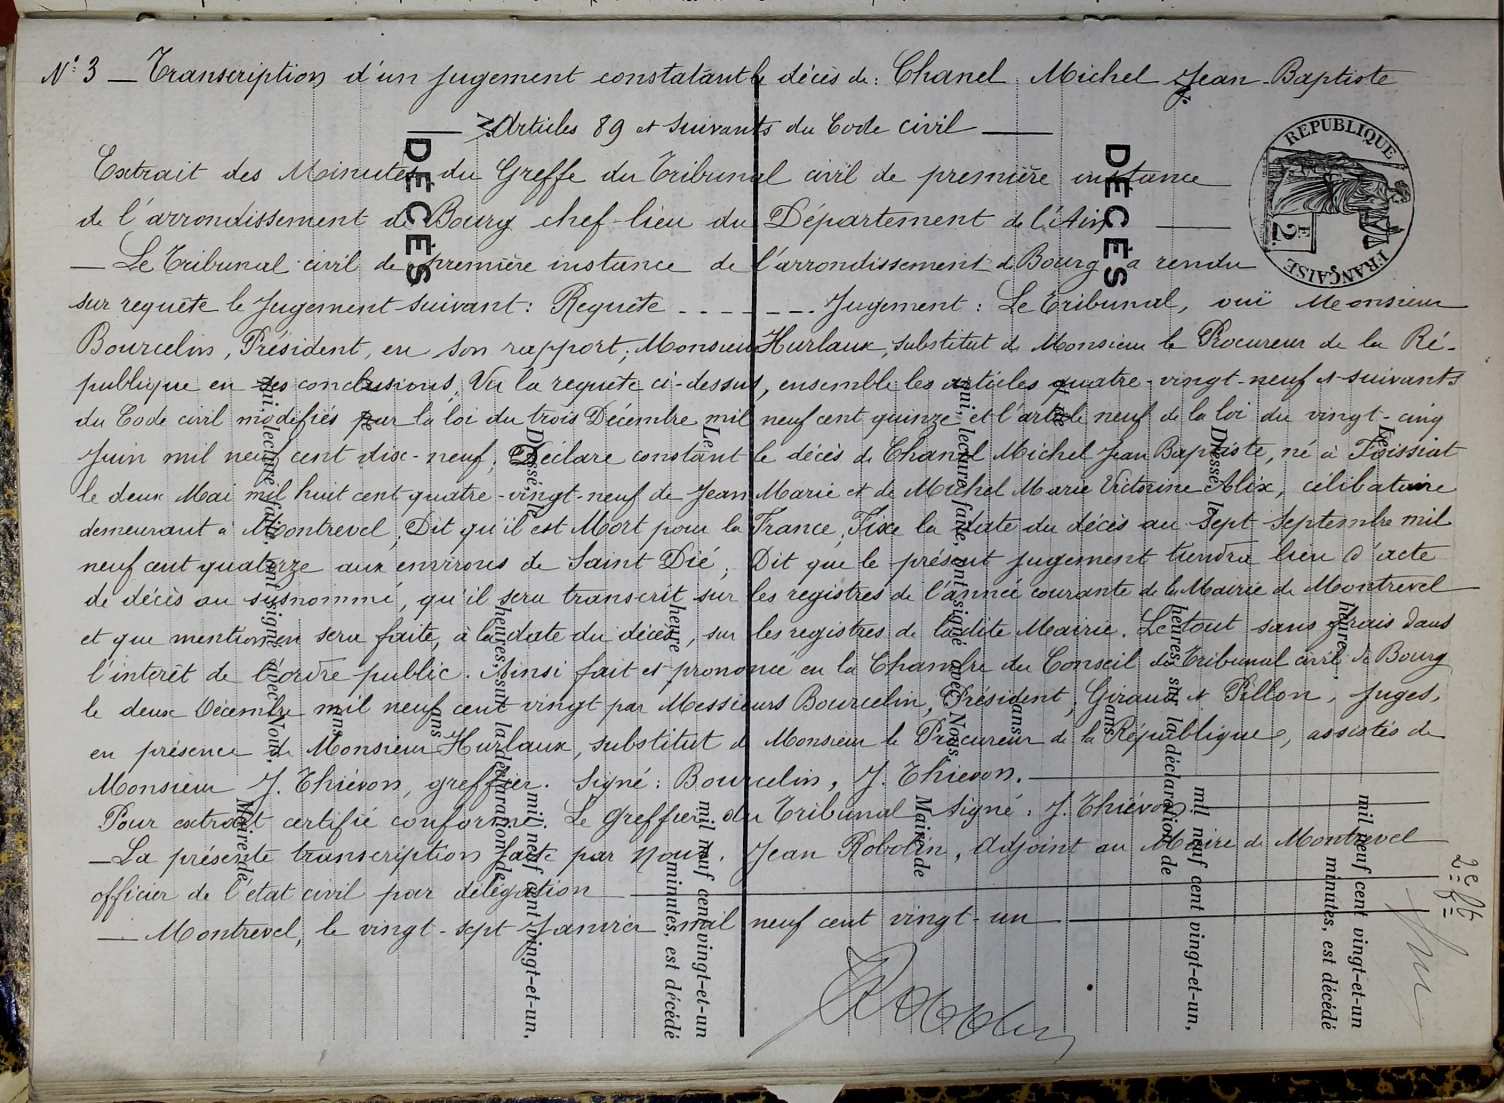 N° 3 — Transcription d'un jugement constatant le décès de : Chanel Michel Jean-Baptiste
— Articles 89 et suivants du Code civil —
Extrait des Minutes du Greffe du Tribunal civil de première instance
de l'arrondissement de Bourg chef-lieu du Département de l'Ain —
— Le Tribunal civil de première instance de l'arrondissement de Bourg a rendu
sur requête le Jugement suivant : Requête - - - - - - - Jugement : Le Tribunal, ouï Monsieur
Bourcelin, Président, en son rapport, Monsieur Hurlaux, substitut de Monsieur le Procureur de la Ré-
publique en ses conclusions, Vu la requête ci-dessus, ensemble les articles quatre-vingt-neuf et suivants
du Code civil modifiés par la loi du trois Décembre mil neuf cent quinze et l'article neuf de la loi du vingt-cinq
Juin mil neuf cent dix-neuf; Déclare constant le décès de Chanel Michel Jean Baptiste, né à Foissiat
le deux Mai mil huit cent quatre-vingt-neuf de Jean Marie et de Michel Marie Victorine Alix, célibataire
demeurant à Montrevel; Dit qu'il est Mort pour la France, Fixe la date du décès au sept Septembre mil
neuf cent quatorze aux environs de Saint Dié; Dit que le présent jugement tiendra lieu d'acte
de décès au susnommé, qu'il sera transcrit sur les registres de l'année courante de la Mairie de Montrevel
et que mention en sera faite, à la date du décès, sur les registres de ladite Mairie. Le tout sans frais dans
l'interêt de l'ordre public. Ainsi fait et prononcé en la Chambre du Conseil du Tribunal civil de Bourg
le deux Décembre mil neuf cent vingt par Messieurs Bourcelin, Président, Giraud et Pillon, Juges,
en présence de Monsieur Hurlaux, substitut de Monsieur le Procureur de la République, assistés de
Monsieur J. Thiévon, greffier. Signé : Bourcelin, J. Thievon. —
Pour extrait certifié conforme Le Greffier du Tribunal Signé : J. Thiévon —
— La présente transcription faite par Nous. Jean Robolin, Adjoint au Maire de Montrevel
officier de l'état civil par délégation —
— Montrevel, le vingt-sept Janvier mil neuf cent vingt-un —
REPUBLIQUE FRANÇAISE
2 F.
DÉCÈS
N°
Le
heure
minutes, est décédé
mil neuf cent vingt-et-un
Dressé le
heures, sur la déclaration de
mil neuf cent vingt-et-un,
et de
ans
ans
qui, lecture faite, ont signé avec Nous,
Maire de
DÉCÈS
N°
Le
heure
minutes, est décédé
mil neuf cent vingt-et-un
Dressé le
heures, sur la déclaration de
mil neuf cent vingt-et-un,
et de
ans
ans
qui, lecture faite, ont signé avec Nous,
Maire de